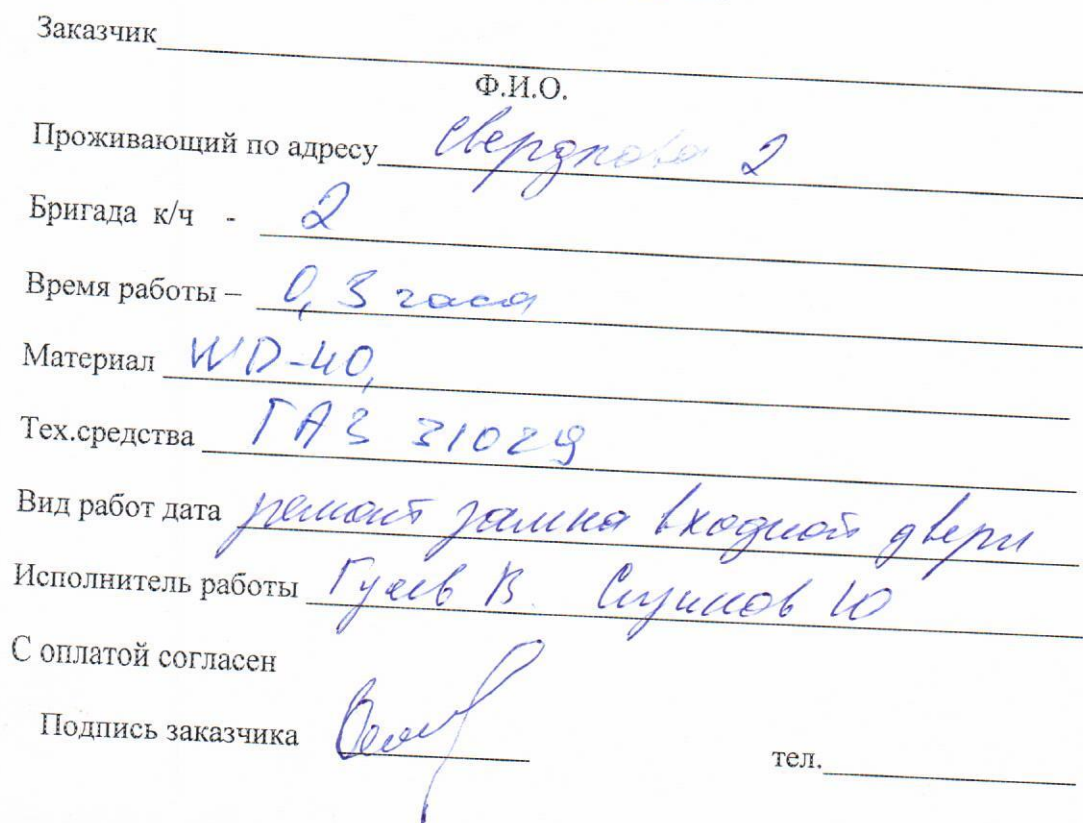 Заказчик
Ф.И.О.
Проживающий по адресу Свердлова 2
Бригада к/ч - 2
Время работы – 0,3 часа
Материал WD-40,
Тех.средства ГАЗ 31029
Вид работ дата ремонт замка входной двери
Исполнитель работы В. Ю
С оплатой согласен
Подпись заказчика
тел.